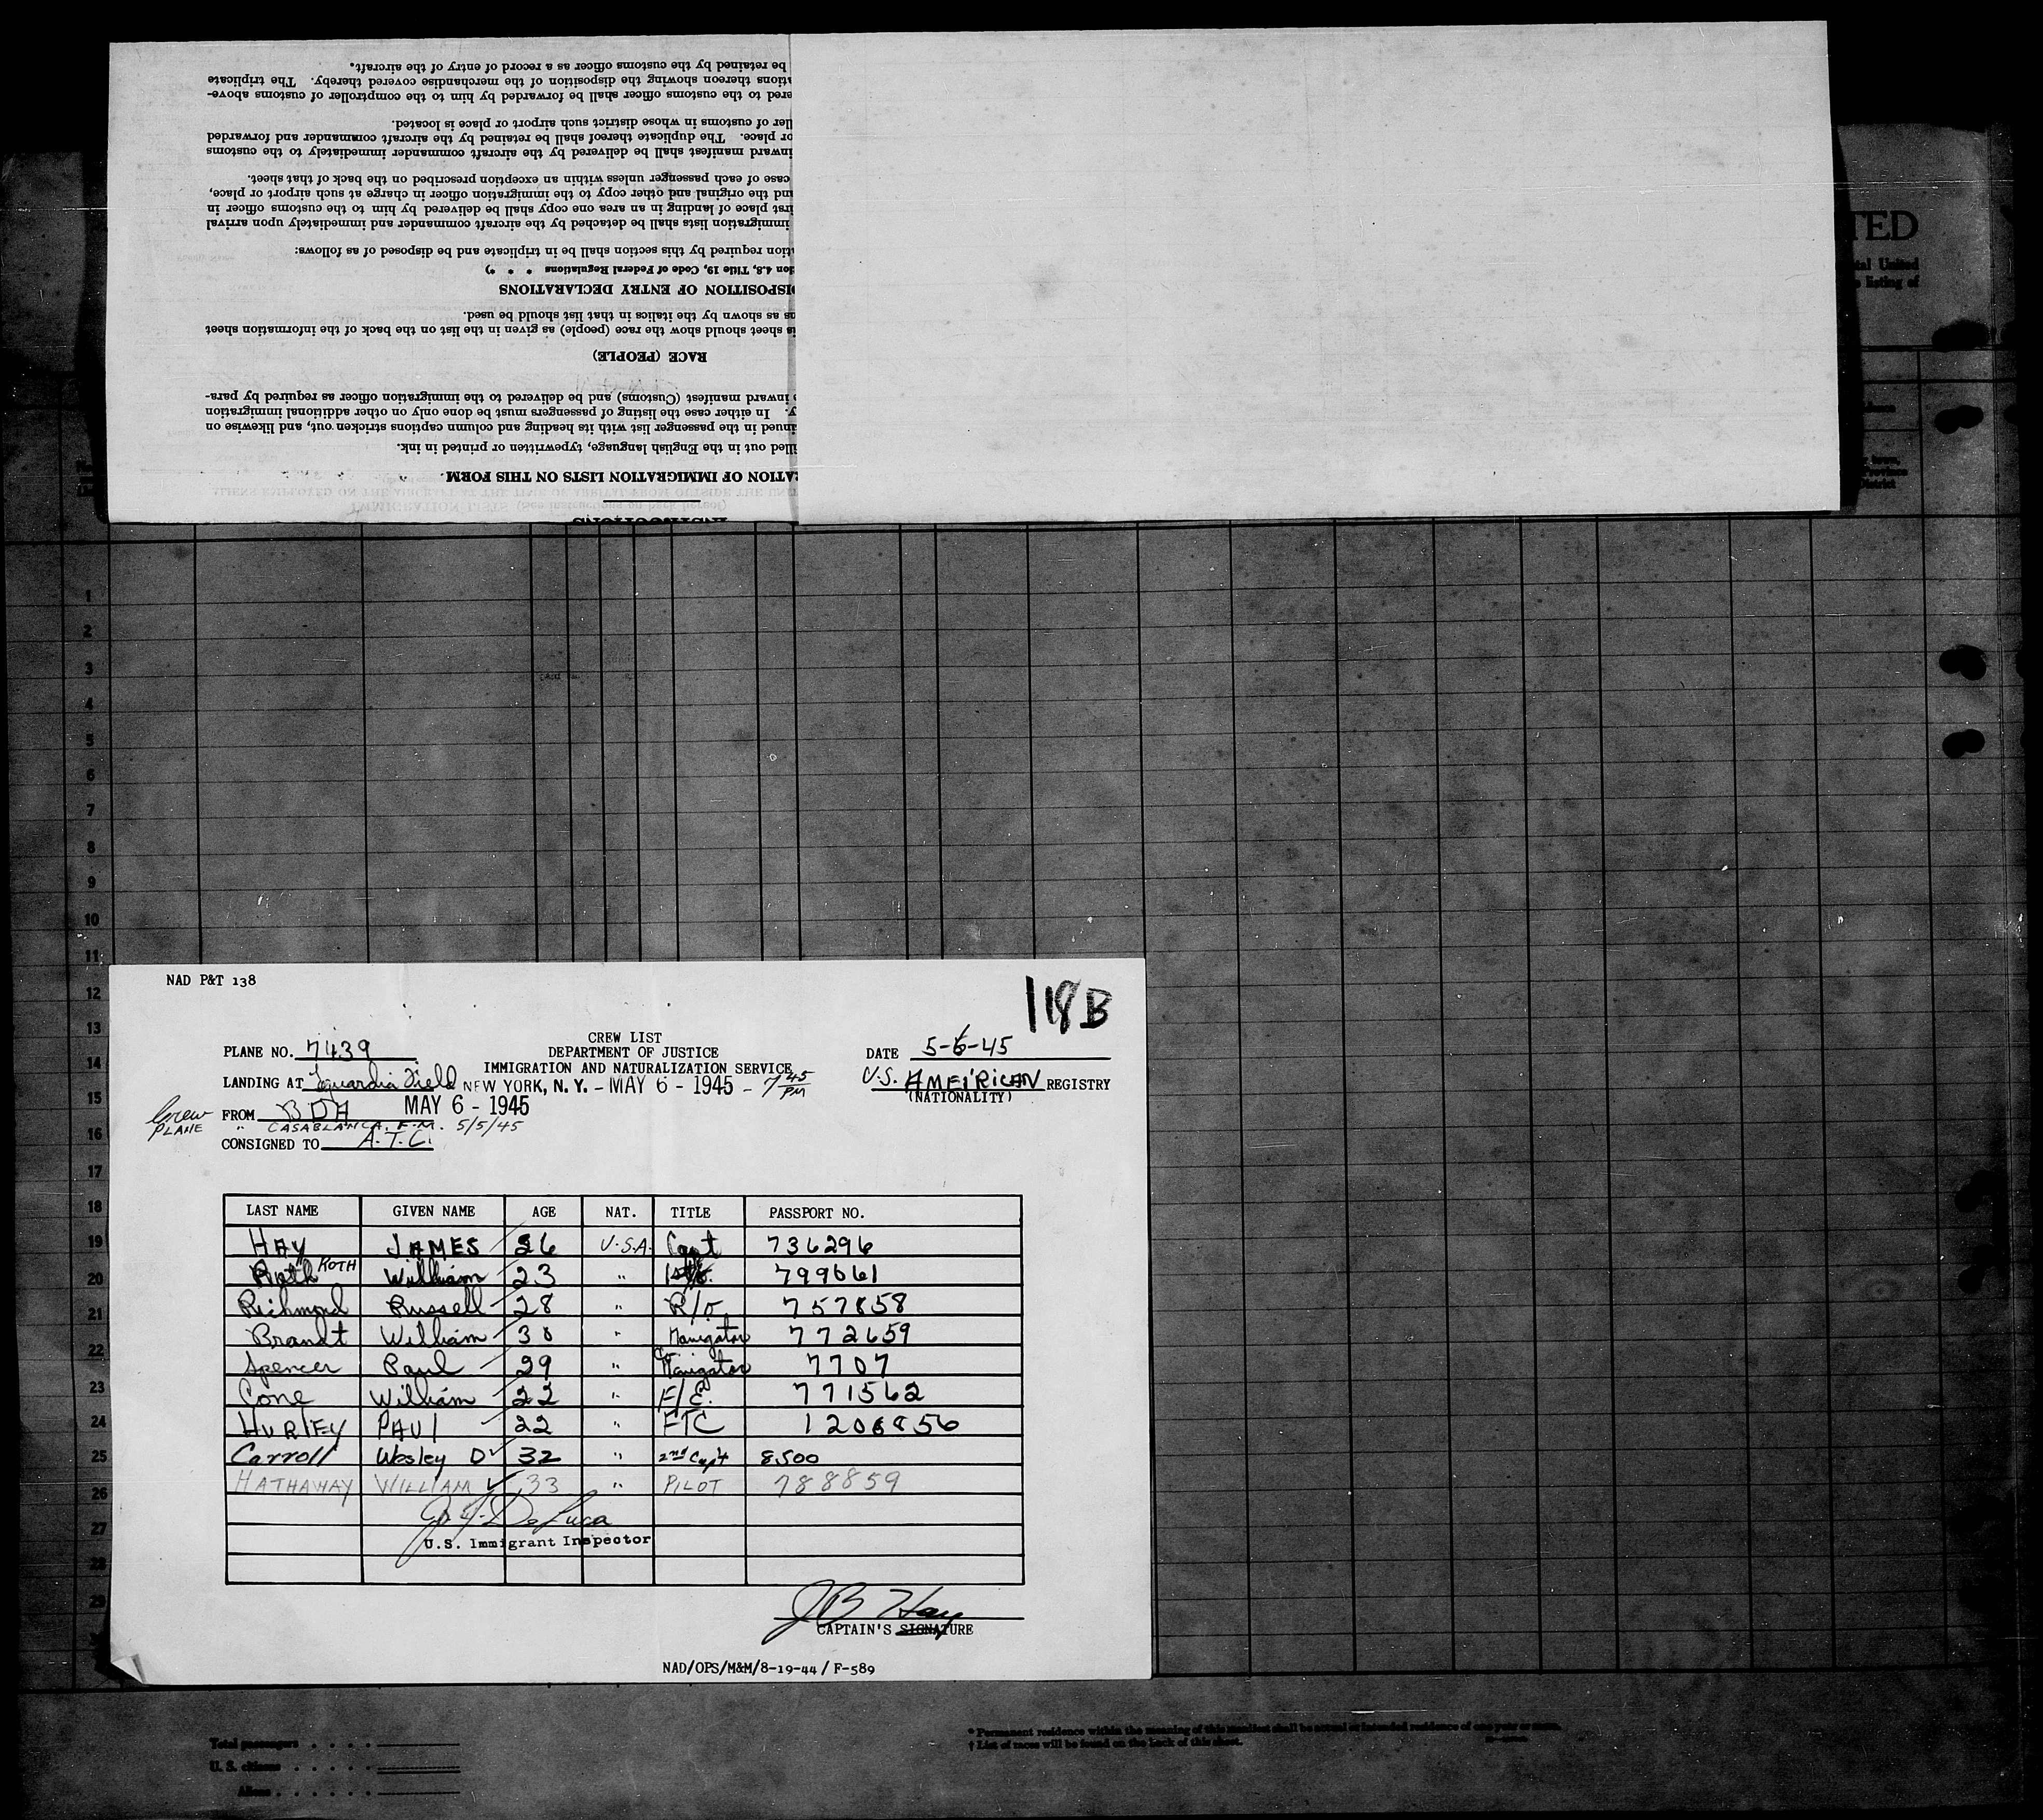 be retained by the customs officer as a record of entry of the aircraft.
ations thereon showing the disposition of the merchandise covered thereby. The triplicate
ered to the customs officer shall be forwarded by him to the comptroller of customs above-
ller of customs in whose district such airport or place is located.
or place. The duplicate thereof shall be retained by the aircraft commander and forwarded
inward manifest shall be delivered by the aircraft commander immediately to the customs
case of each passenger unless within an exception prescribed on the back of that sheet.
and the original and other copy to the immigration officer in charge at such airport or place,
irst place of landing in an area one copy shall be delivered by him to the customs officer in
immigration lists shall be detached by the aircraft commander and immediately upon arrival
ation required by this section shall be in triplicate and be disposed of as follows:
ion 4.8, Title 19, Code of Federal Regulations * * *)
DISPOSITION OF ENTRY DECLARATIONS
ns as shown by the italics in that list should be used.
is sheet should show the race (people) as given in the list on the back of the information sheet
RACE (PEOPLE)
inward manifest (Customs) and be delivered to the immigration officer as required by para-
y. In either case the listing of passengers must be done only on other additional immigration
inued in the passenger list with its heading and column captions stricken out, and likewise on
illed out in the English language, typewritten or printed in ink.
RATION OF IMMIGRATION LISTS ON THIS FORM.
INSTRUCTIONS
TED
tal United
listing of
1
2
3
4
5
6
7
8
9
10
11
12
13
14
15
16
17
18
19
20
21
22
23
24
25
26
27
28
29
NAD P&T 138
118B
CREW LIST
PLANE NO. 7439 DEPARTMENT OF JUSTICE DATE 5-6-45
IMMIGRATION AND NATURALIZATION SERVICE
LANDING AT Laguardia Field NEW YORK, N. Y. - MAY 6 - 1945 - 7 45 PM U.S. AMERICAN REGISTRY
(NATIONALITY)
Crew FROM BDA MAY 6 - 1945
PLANE " CASABLANCA. F.M. 5/5/45
CONSIGNED TO A.T.C.
LAST NAME GIVEN NAME AGE NAT. TITLE PASSPORT NO.
HAY JAMES 26 U.S.A. Capt 736296
Roth KOTH William 23 " 1st/o. 799661
Richmond Russell 28 " R/o 757858
Brandt William 30 " Navigator 772659
Spencer Paul 29 " Navigator 7707
Cone William 22 " F/E. 771562
HURLEY PAUL 22 " FTC 1206856
Carroll Wesley D 32 " 2nd Capt 8500
HATHAWAY WILLIAM 33 " PILOT 788859
U.S. Immigrant Inspector
J B Hay
CAPTAIN'S SIGNATURE
NAD/OPS/M&M/8-19-44/ F-589
* Permanent residence within the meaning of this manifest shall be actual or intended residence of one year or more.
† List of races will be found on the back of this sheet.
Total passengers . . . .
U. S. citizens . . . . .
Aliens . . . . . .